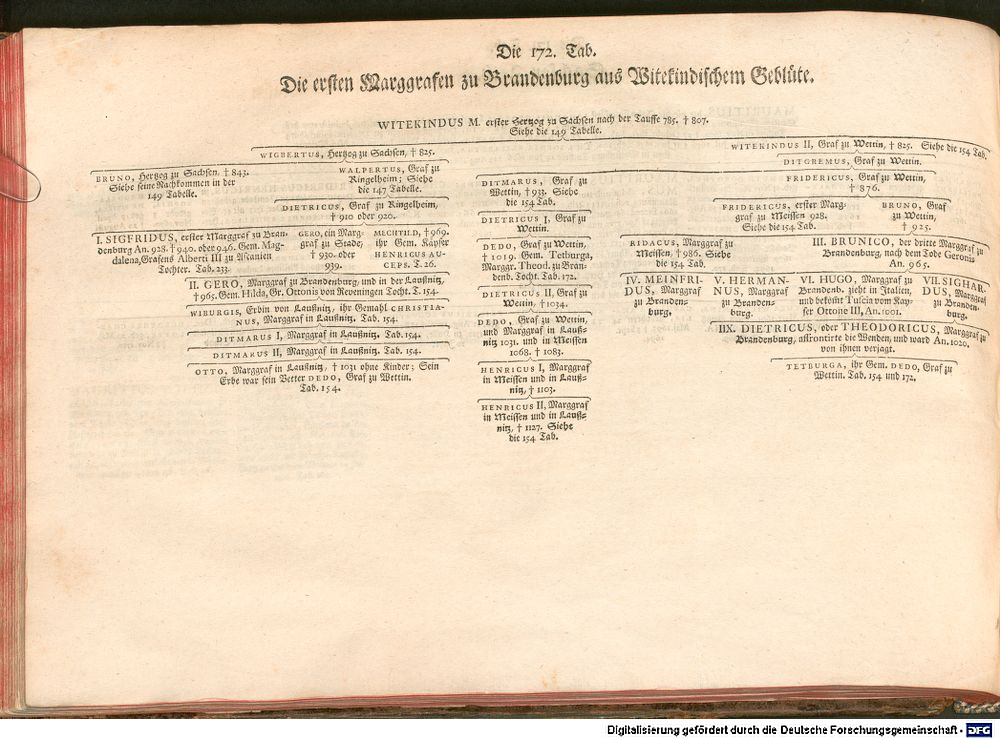 Die 172. Tab.
Die ersten Marggrafen zu Brandenburg aus Witekindischem Geblüte.
WITEKINDUS M. erster Hertzog zu Sachsen nach der Tauffe 785. † 807.
Siehe die 149 Tabelle.
WIGBERTUS, Hertzog zu Sachsen, † 825.
BRUNO, Hertzog zu Sachsen. † 843.
Siehe seine Nachkommen in der
149 Tabelle.
WALPERTUS, Graf zu
Ringelheim; Siehe
die 147 Tabelle.
DIETRICUS, Graf zu Ringelheim,
† 910 oder 920.
I. SIGFRIDUS, erster Marggraf zu Bran-
denburg An. 928. † 940. oder 946. Gem. Mag-
dalena, Grafens Alberti III zu Ascanien
Tochter. Tab. 233.
GERO, ein Marg-
graf zu Stade,
† 930. oder
939.
MECHTILD, † 969.
ihr Gem. Kayser
HENRICUS AU-
CEPS. T. 26.
II. GERO, Marggraf zu Brandenburg, und in der Laußnitz,
† 965. Gem. Hilda, Gr. Ottonis von Reveningen Tocht. T. 154.
WIBURGIS, Erbin von Laußnitz, ihr Gemahl CHRISTIA-
NUS, Marggraf in Laußnitz. Tab. 154.
DITMARUS I, Marggraf in Laußnitz. Tab. 154.
DITMARUS II, Marggraf in Laußnitz. Tab. 154.
OTTO, Marggraf in Laußnitz, † 1031 ohne Kinder; Sein
Erbe war sein Vetter DEDO, Graf zu Wettin.
Tab. 154.
WITEKINDUS II, Graf zu Wettin, † 825. Siehe die 154 Tab.
DITGREMUS, Graf zu Wettin.
DITMARUS, Graf zu
Wettin, † 933. Siehe
die 154 Tab.
DIETRICUS I, Graf zu
Wettin.
DEDO, Graf zu Wettin,
† 1019. Gem. Tetburga,
Marggr. Theod. zu Bran-
denb. Tocht. Tab. 172.
DIETRICUS II, Graf zu
Wettin, † 1034.
DEDO, Graf zu Wettin,
und Marggraf in Lauß-
nitz 1031. und in Meissen
1068. † 1083.
HENRICUS I, Marggraf
in Meissen und in Lauß-
nitz, † 1103.
HENRICUS II, Marggraf
in Meissen und in Lauß-
nitz, † 1127. Siehe
die 154 Tab.
FRIDERICUS, Graf zu Wettin,
† 876.
FRIDERICUS, erster Marg-
graf zu Meissen 928.
Siehe die 154 Tab.
BRUNO, Graf
zu Wettin,
† 925.
RIDACUS, Marggraf zu
Meissen, † 986. Siehe
die 154 Tab.
III. BRUNICO, der dritte Marggraf zu
Brandenburg, nach dem Tode Geronis
An. 965.
IV. MEINFRI-
DUS, Marggraf
zu Brandens
burg.
V. HERMAN-
NUS, Marggraf
zu Brandens
burg.
VI. HUGO, Marggraf zu
Brandenb. zieht in Italien,
und bekömt Tuscia vom Kay-
ser Ottone III, An. 1001.
VII. SIGHAR-
DUS, Marggraf
zu Branden-
burg.
IIX. DIETRICUS, oder THEODORICUS, Marggraf zu
Brandenburg, affrontirte die Wenden, und ward An. 1020.
von ihnen verjagt.
TETBURGA, ihr Gem. DEDO, Graf zu
Wettin. Tab. 154 und 172.
Digitalisierung gefördert durch die Deutsche Forschungsgemeinschaft - DFG